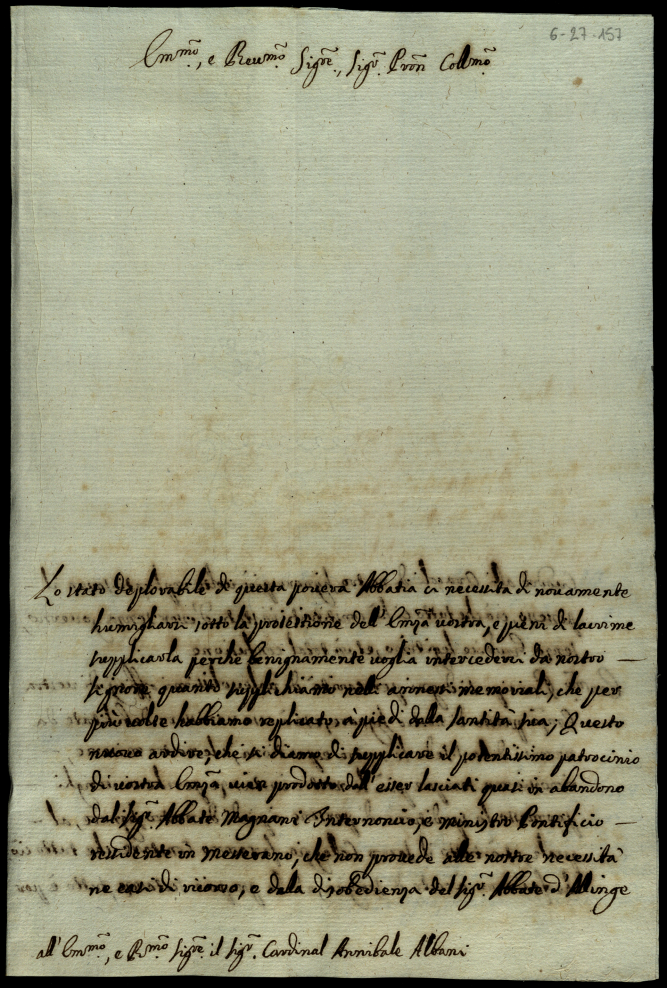 6-27-157
Em.mo, e Reu.mo Sig.re, Sig.r Pron Coll.mo
Lo stato deplorabile di questa pouera Abbatia ci necessita di nouamente
humigliarsi sotto la protettione dell'Em.za uostra, e pieni di lacrime
supplicarla perche benignamente uoglia intercederci da nostro
signore quanto supplichiamo nelli annessi memoriali, che per
più uolte habbiamo replicato à piedi della santità sua; Questo
nuouo ardire, che si diamo di supplicare il potentissimo patrocinio
di uostra Em.za uien prodotto dall'esser lasciati quasi in abandono
dal Sig.r Abbate Magnani Internoncio, e ministro Pontificio
ressidente in Messerano, che non prouede alle nostre necessità
ne casi di ricorso, e dalla disobedienza del sig.r Abbate d'Allinge
all'Em.mo, e R.mo sig.re il sig.r Cardinal Annibale Albani